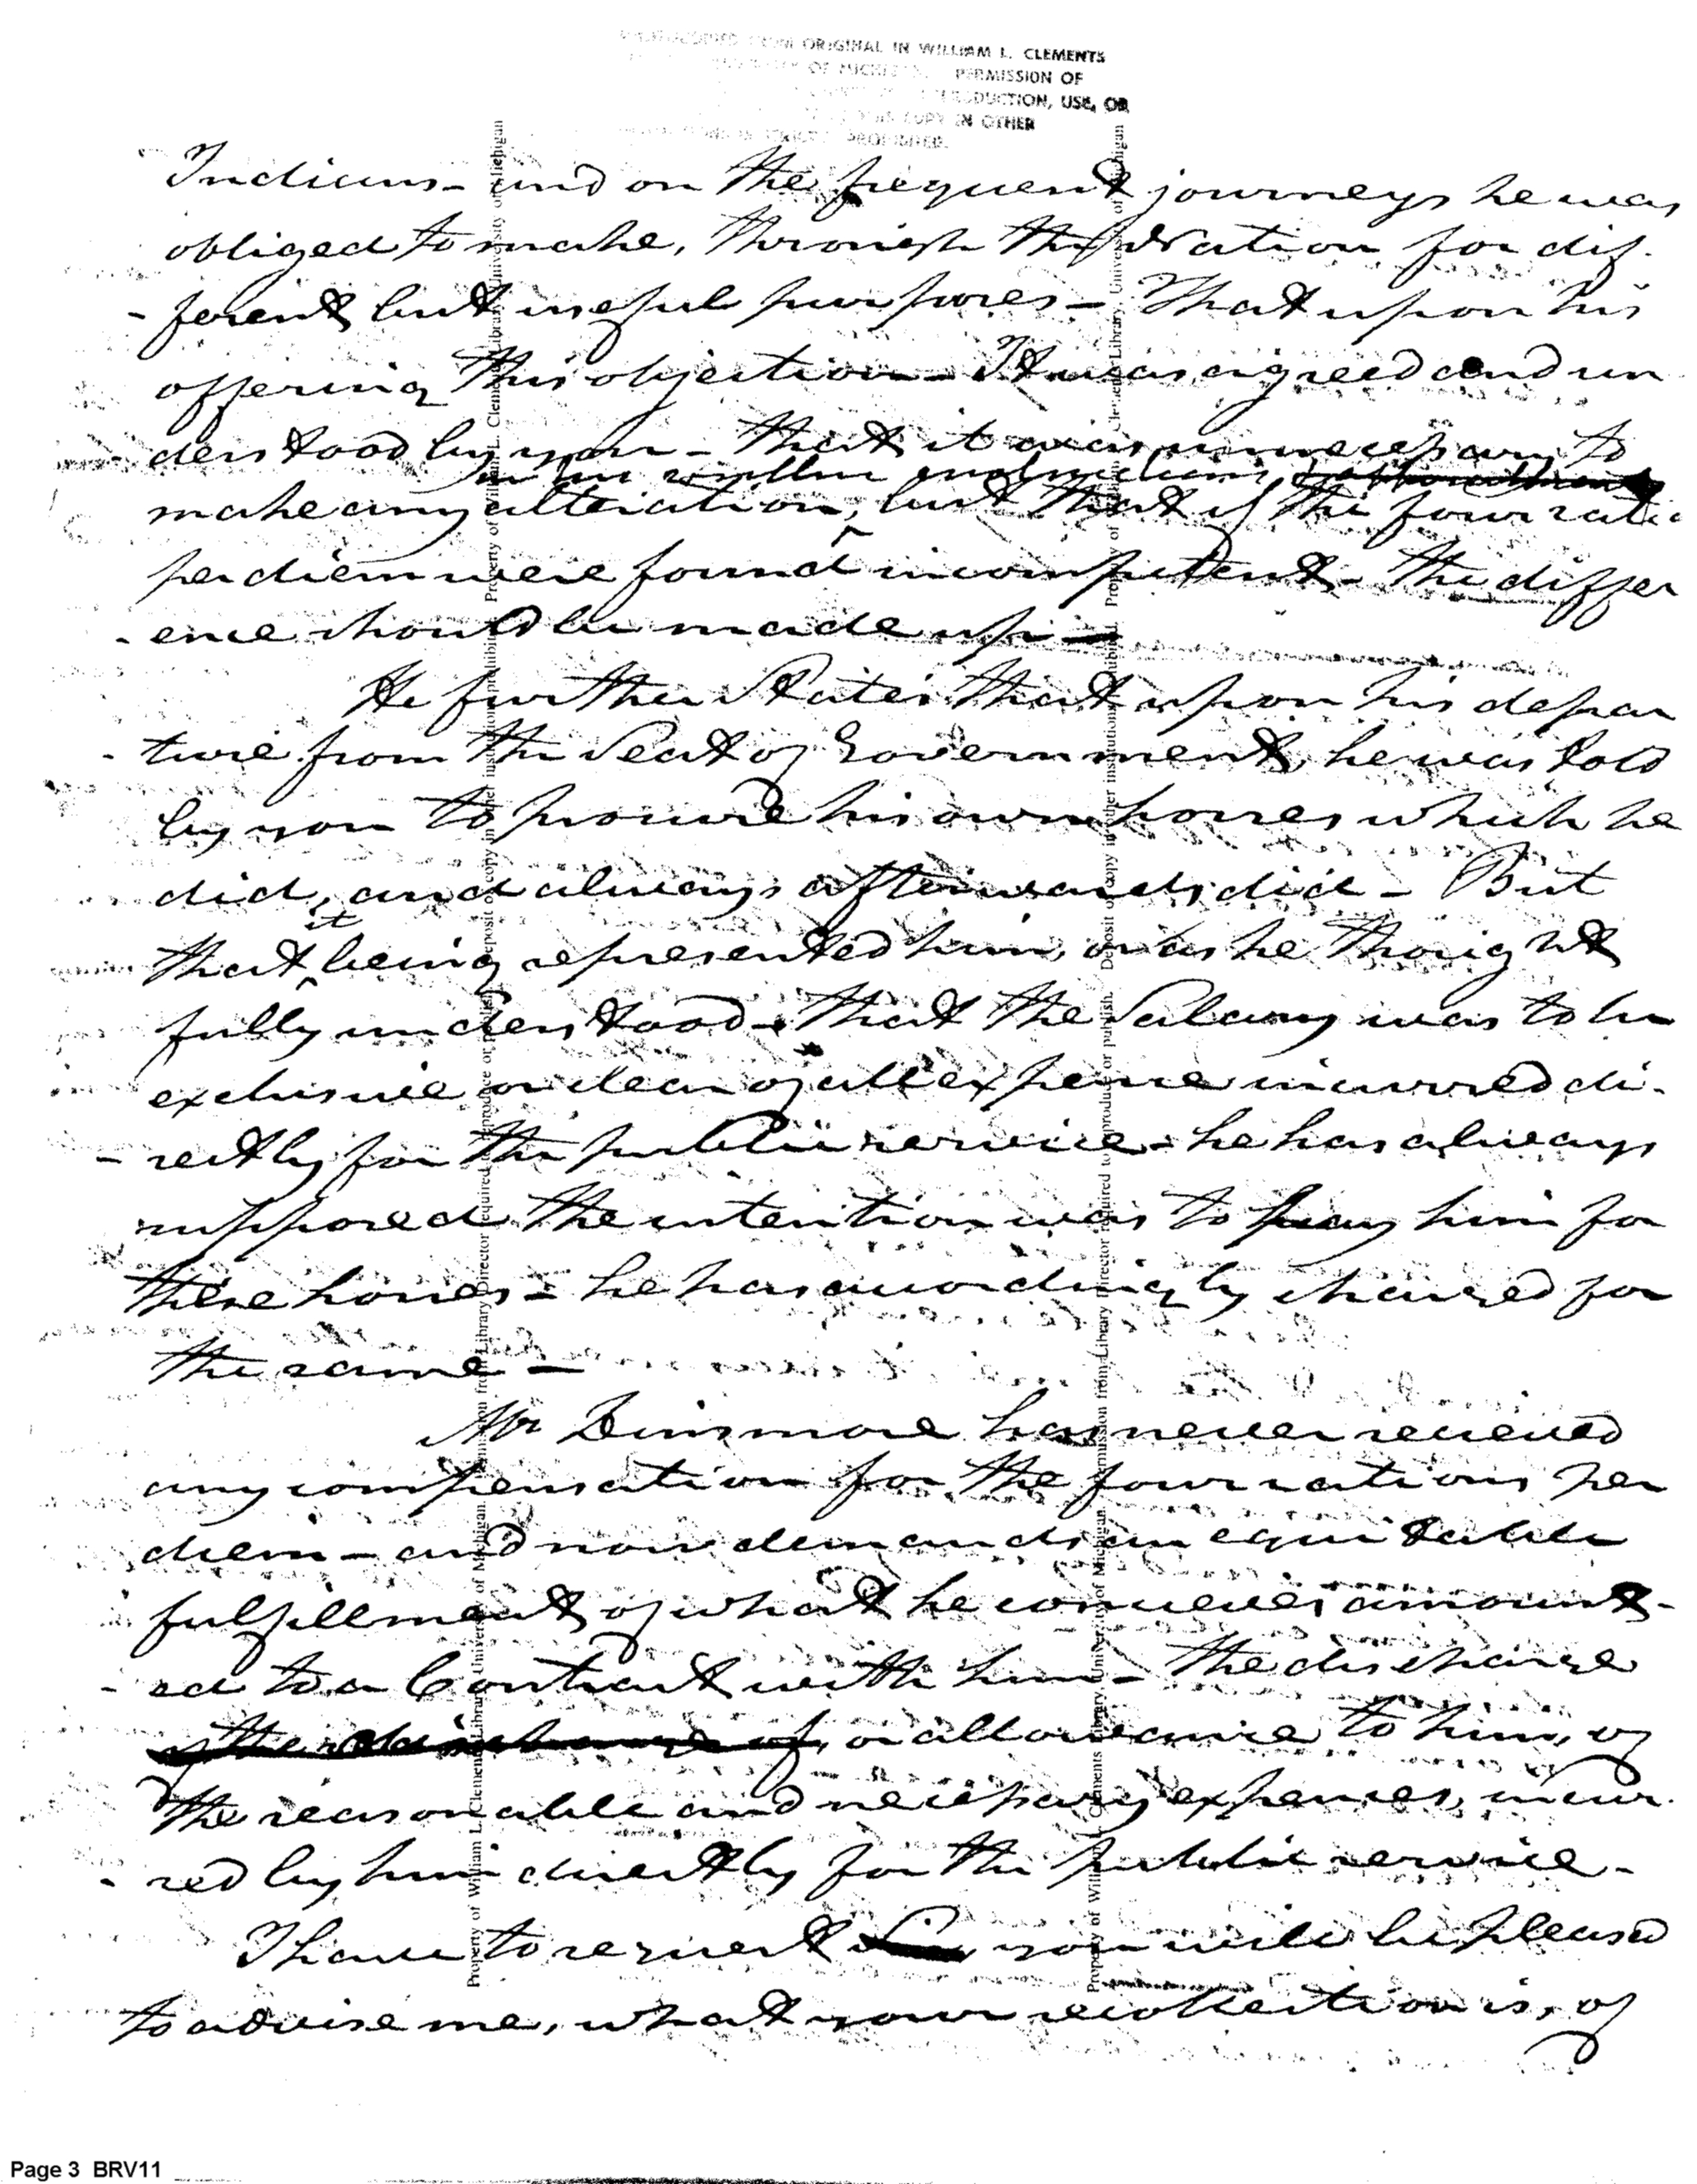 ORIGINAL IN WILLIAM L. CLEMENTS
OF MICHIGAN. PERMISSION OF
REPRODUCTION, USE, OR
COPY IN OTHER
PROHIBITED.
Indians - and on the frequent journeys he was
obliged to make, through the Nation for dif-
- ferent but useful purposes - That upon his
offering this objection - It was agreed and un
derstood by you - that it was unnecessary to
in his written instructions
make any alteration, but that if the four ratio
per diem were found incompetent - the differ
- ence should be made up -
He further States that upon his depar
- ture from the Seat of Government, he was told
by you to procure his own horses which he
did, and always afterwards did - But
it
that being represented him, or as he thought
fully understood - that the Salary was to be
exclusive or clear of all expence incurred di-
- rectly for the public service - he has always
supposed the intention was to pay him for
these horses - he has accordingly charged for
the same -
Mr Dinsmore has never received
any compensation for the four rations per
diem - and now demands an equitable
fulfillment of what he conceives amount-
- ed to a Contract with him - the discharge
of the discharge of, or allowance to him, of
the reasonable and necessary expenses, incur-
- red by him directly for the public service -
I have to request you will be pleased
to advise me, what your recollection is, of
Property of William L. Clements Library, University of Michigan. Deposit of copy in other institutions prohibited. Permission from Library Director required to reproduce or publish.
Property of William L. Clements Library, University of Michigan. Deposit of copy in other institutions prohibited. Permission from Library Director required to reproduce or publish.
Page 3 BRV11